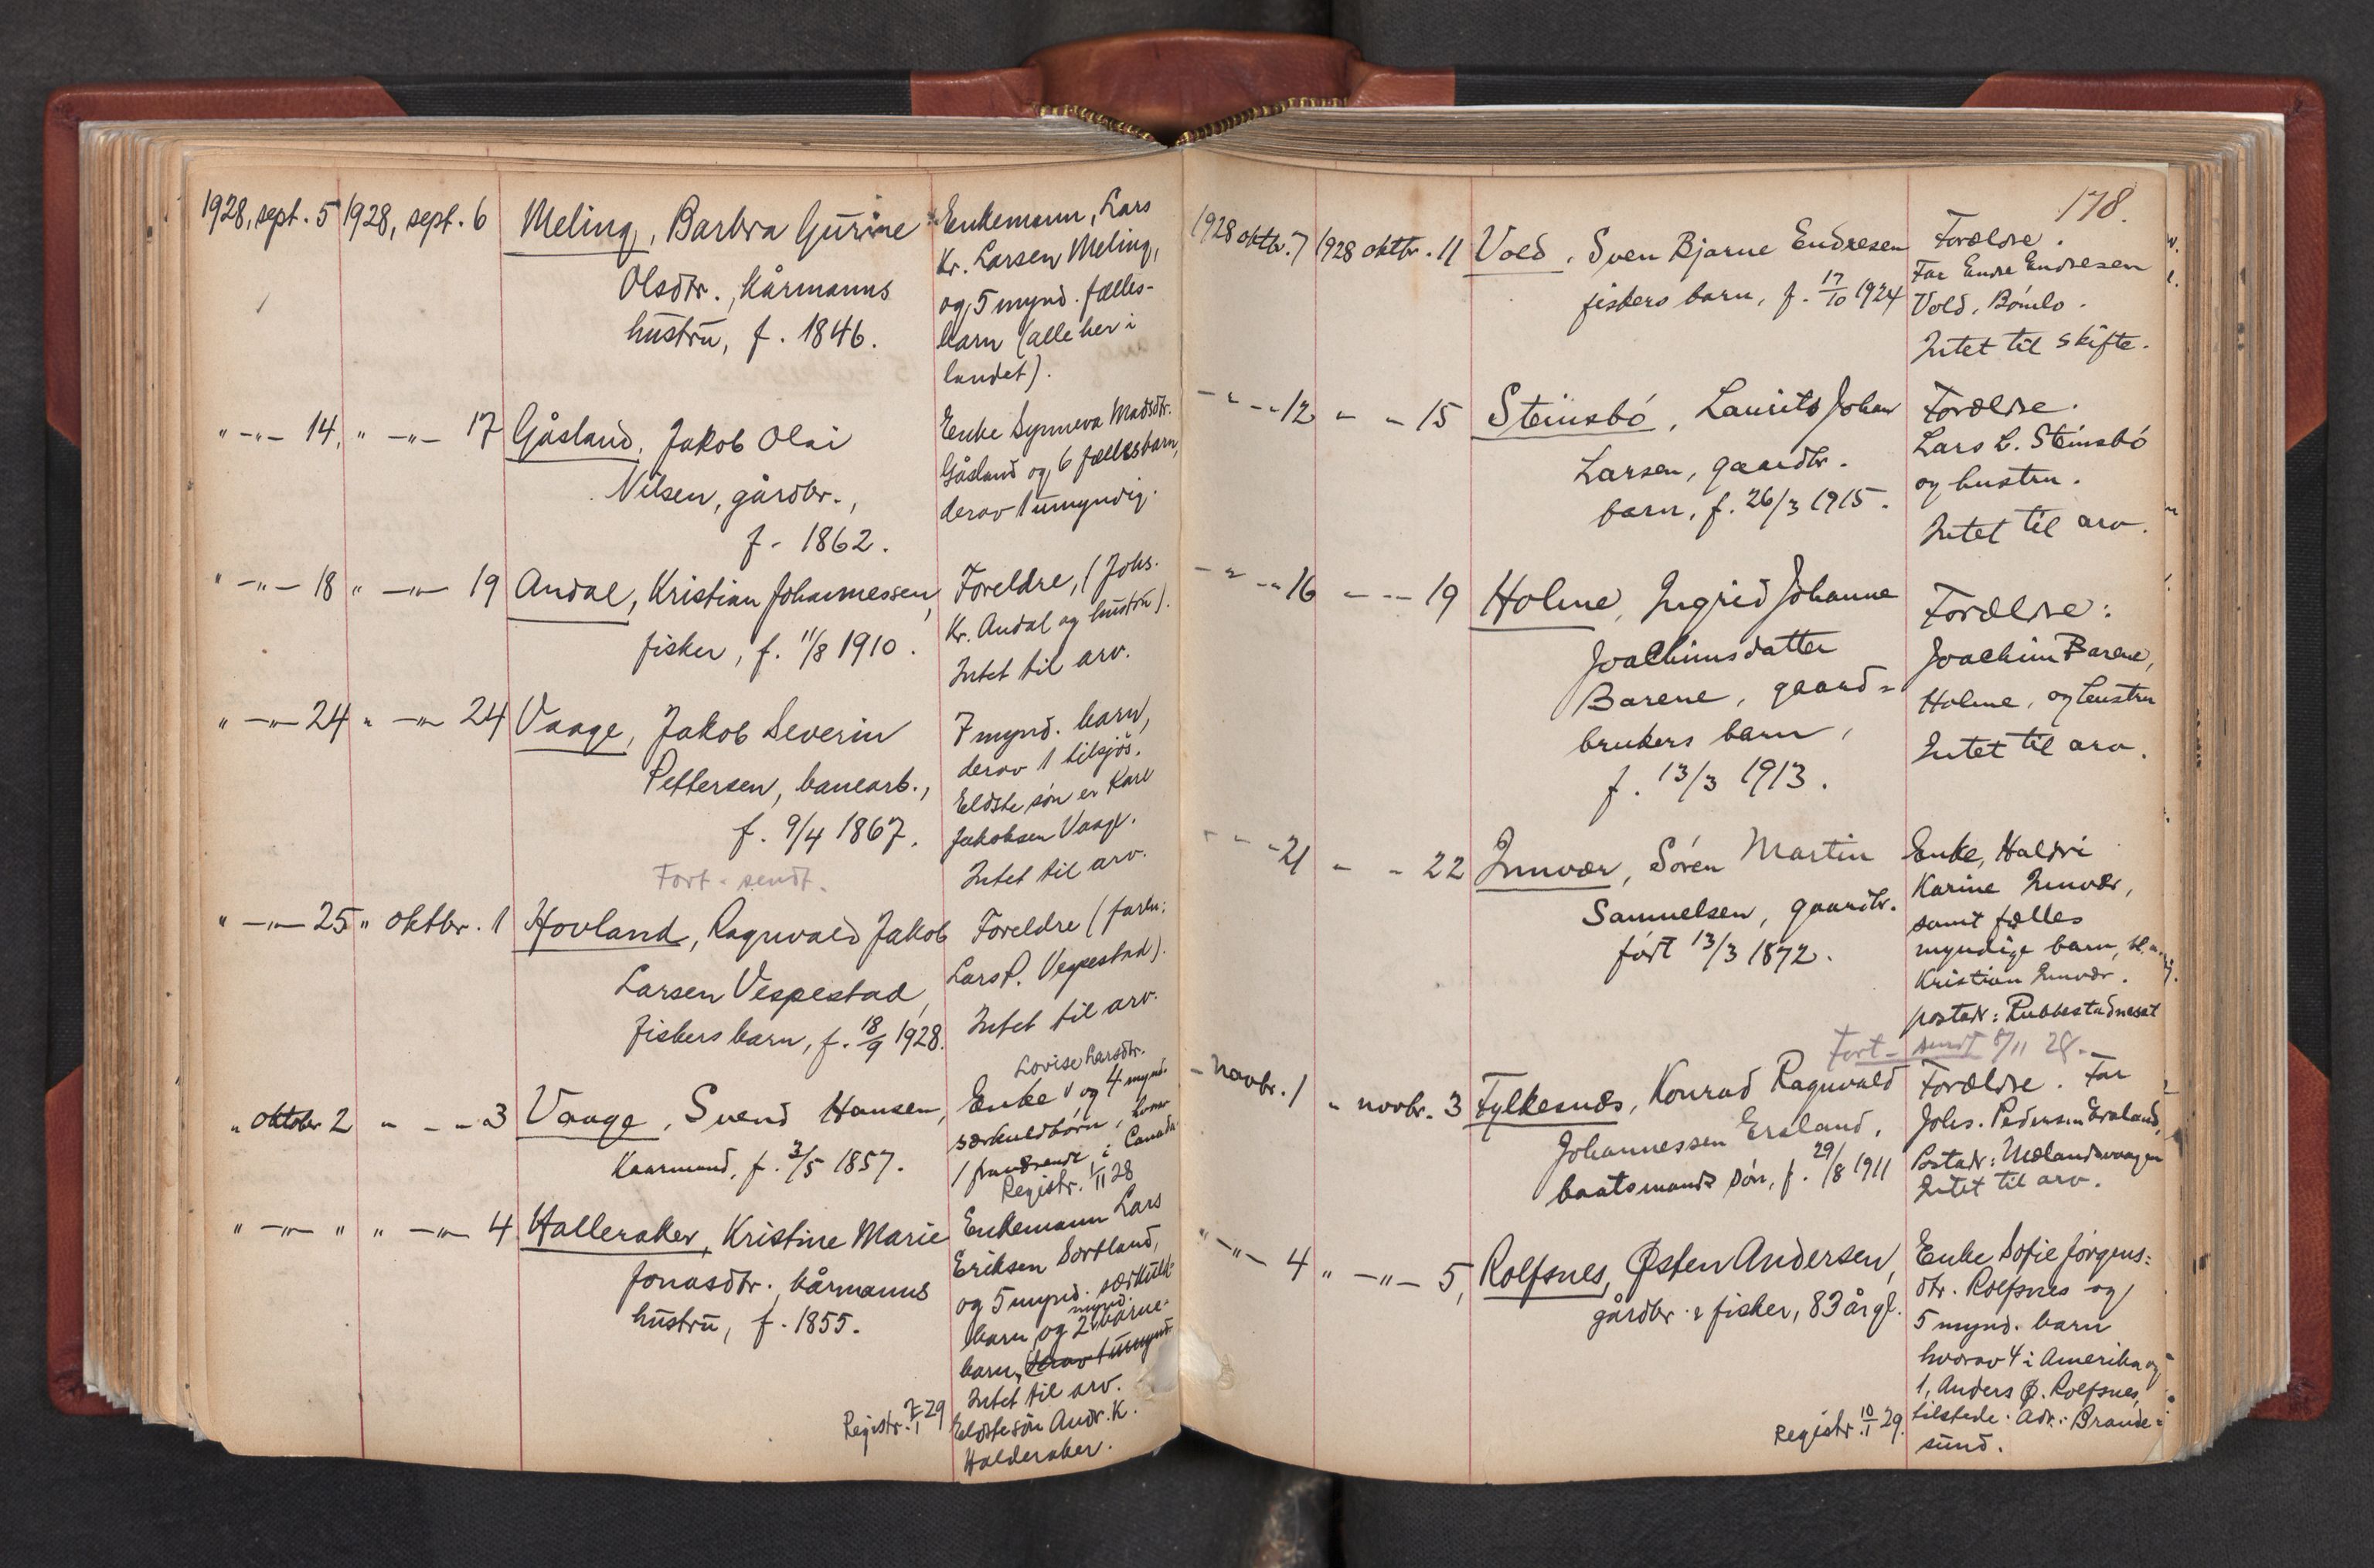 1928, sept. 5 1928, sept. 6 Meling, Barbra Gurine Enkemann, Lars
Olsdtr., kårmanns Kr. Larsen Meling,
hustru, f. 1846. og 5 mynd. fælles-
barn (alle her i
landet).
" -"- 14, " -"- 17 Gåsland, Jakob Olai Enke Synneva Madsdtr.
Nilsen, gårdbr., Gåsland og 6 fællesbarn,
f. 1862. derav 1 umyndig.
" -"- 18 " -"- 19 Andal, Kristian Johannessen, Foreldre, (Johs.
fisker, f. 11/8 1910. Kr. Andal og hustru).
Intet til arv.
" -"- 24 " -"- 24 Vaage, Jakob Severin 7 mynd. barn,
Pettersen, banearb., derav 1 tilsjøs.
f. 9/4 1867. Eldste søn er Karl
Jakobsen Vaage.
Fort. sendt. Intet til arv.
" -"- 25 " oktbr. 1 Hovland, Ragnvald Jakob Foreldre (faren:
Larsen Vespestad, Lars P. Vespestad).
fiskers barn, f. 18/9 1928. Intet til arv.
Lovise Larsdtr.
" oktober 2 " - - 3 Vaage, Svend Hansen, Enke v og 4 mynd.
Kaarmand, f. 3/5 1857. særkuldbørn,
1 fraværende i Canada
Registr. 1/11 28
" -"- " " -"- 4 Halleraker, Kristine Marie Enkemann Lars
Jonasdtr. kårmanns Eriksen Sortland,
hustru, f. 1855. og 5 mynd. særkuld-
barn og 2 mynd. barne-
barn, derav 1 umynd.
Intet til arv.
Registr. 7/1 29 Eldste søn Andr. K.
Halderaker.
178.
1928 oktbr. 7 1928 oktbr. 11 Vold, Sven Bjarne Endresen Forældre.
fiskers barn, f. 17/10 1924 Far Endre Endresen
Vold, Bømlo.
Intet til skifte.
- " - 12 " - 15 Steinsbø, Laurits Johan Forældre.
Larsen, gaardbr. Lars L. Steinsbø
barn, f. 26/3 1915. og hustru.
Intet til arv.
- " - 16 - - 19 Holme, Ingrid Johanne Forældre:
Joachimsdatter Joachim Barene,
Barene, gaard= Holme, og hustru
brukers barn, Intet til arv.
f. 13/3 1913.
" - - 21 - - 22 Innvær, Søren Martin Enke, Haldri
Samuelsen, gaardbr. Karine Innvær,
født 13/3 1872. samt fælles
myndige barn, bl. a.
Kristian Innvær.
postadr: Rubbestadneset
Fort. sendt 8/11 28.
- Novbr. 1 " novbr. 3 Fylkesnæs, Konrad Ragnvald Forældre. Far
Johannessen Ersland, Johs. Pedersen Ersland,
baatsmands søn, f. 29/8 1911 Postadr: Mælandsvaagen
Intet til arv.
" -"- 4 " -"- 5, Rolfsnes, Østen Andersen, Enke Sofie Jørgens=
gårdbr. & fisker, 83 år gl. dtr. Rolfsnes og
5 mynd. barn
hvorav 4 i Amerika og
1, Anders Ø. Rolfsnes,
Registr. 10/1 29. tilstede. Adr.: Brande=
sund.